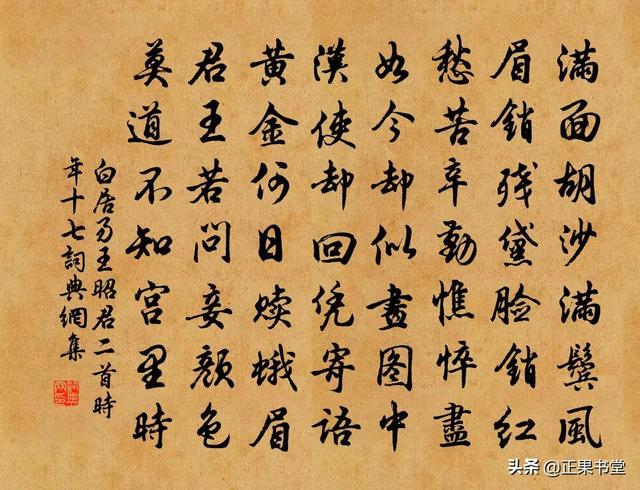 满面胡沙满鬓風
眉銷残黛脸銷红
愁苦辛勤憔悴盡
如今却似畫图中
漢使却回凭寄語
黄金何日赎蛾眉
君王若问妾颜色
莫道不知宫里時
白居易王昭君二首時
年十七詞典網集
头条 @正果书堂